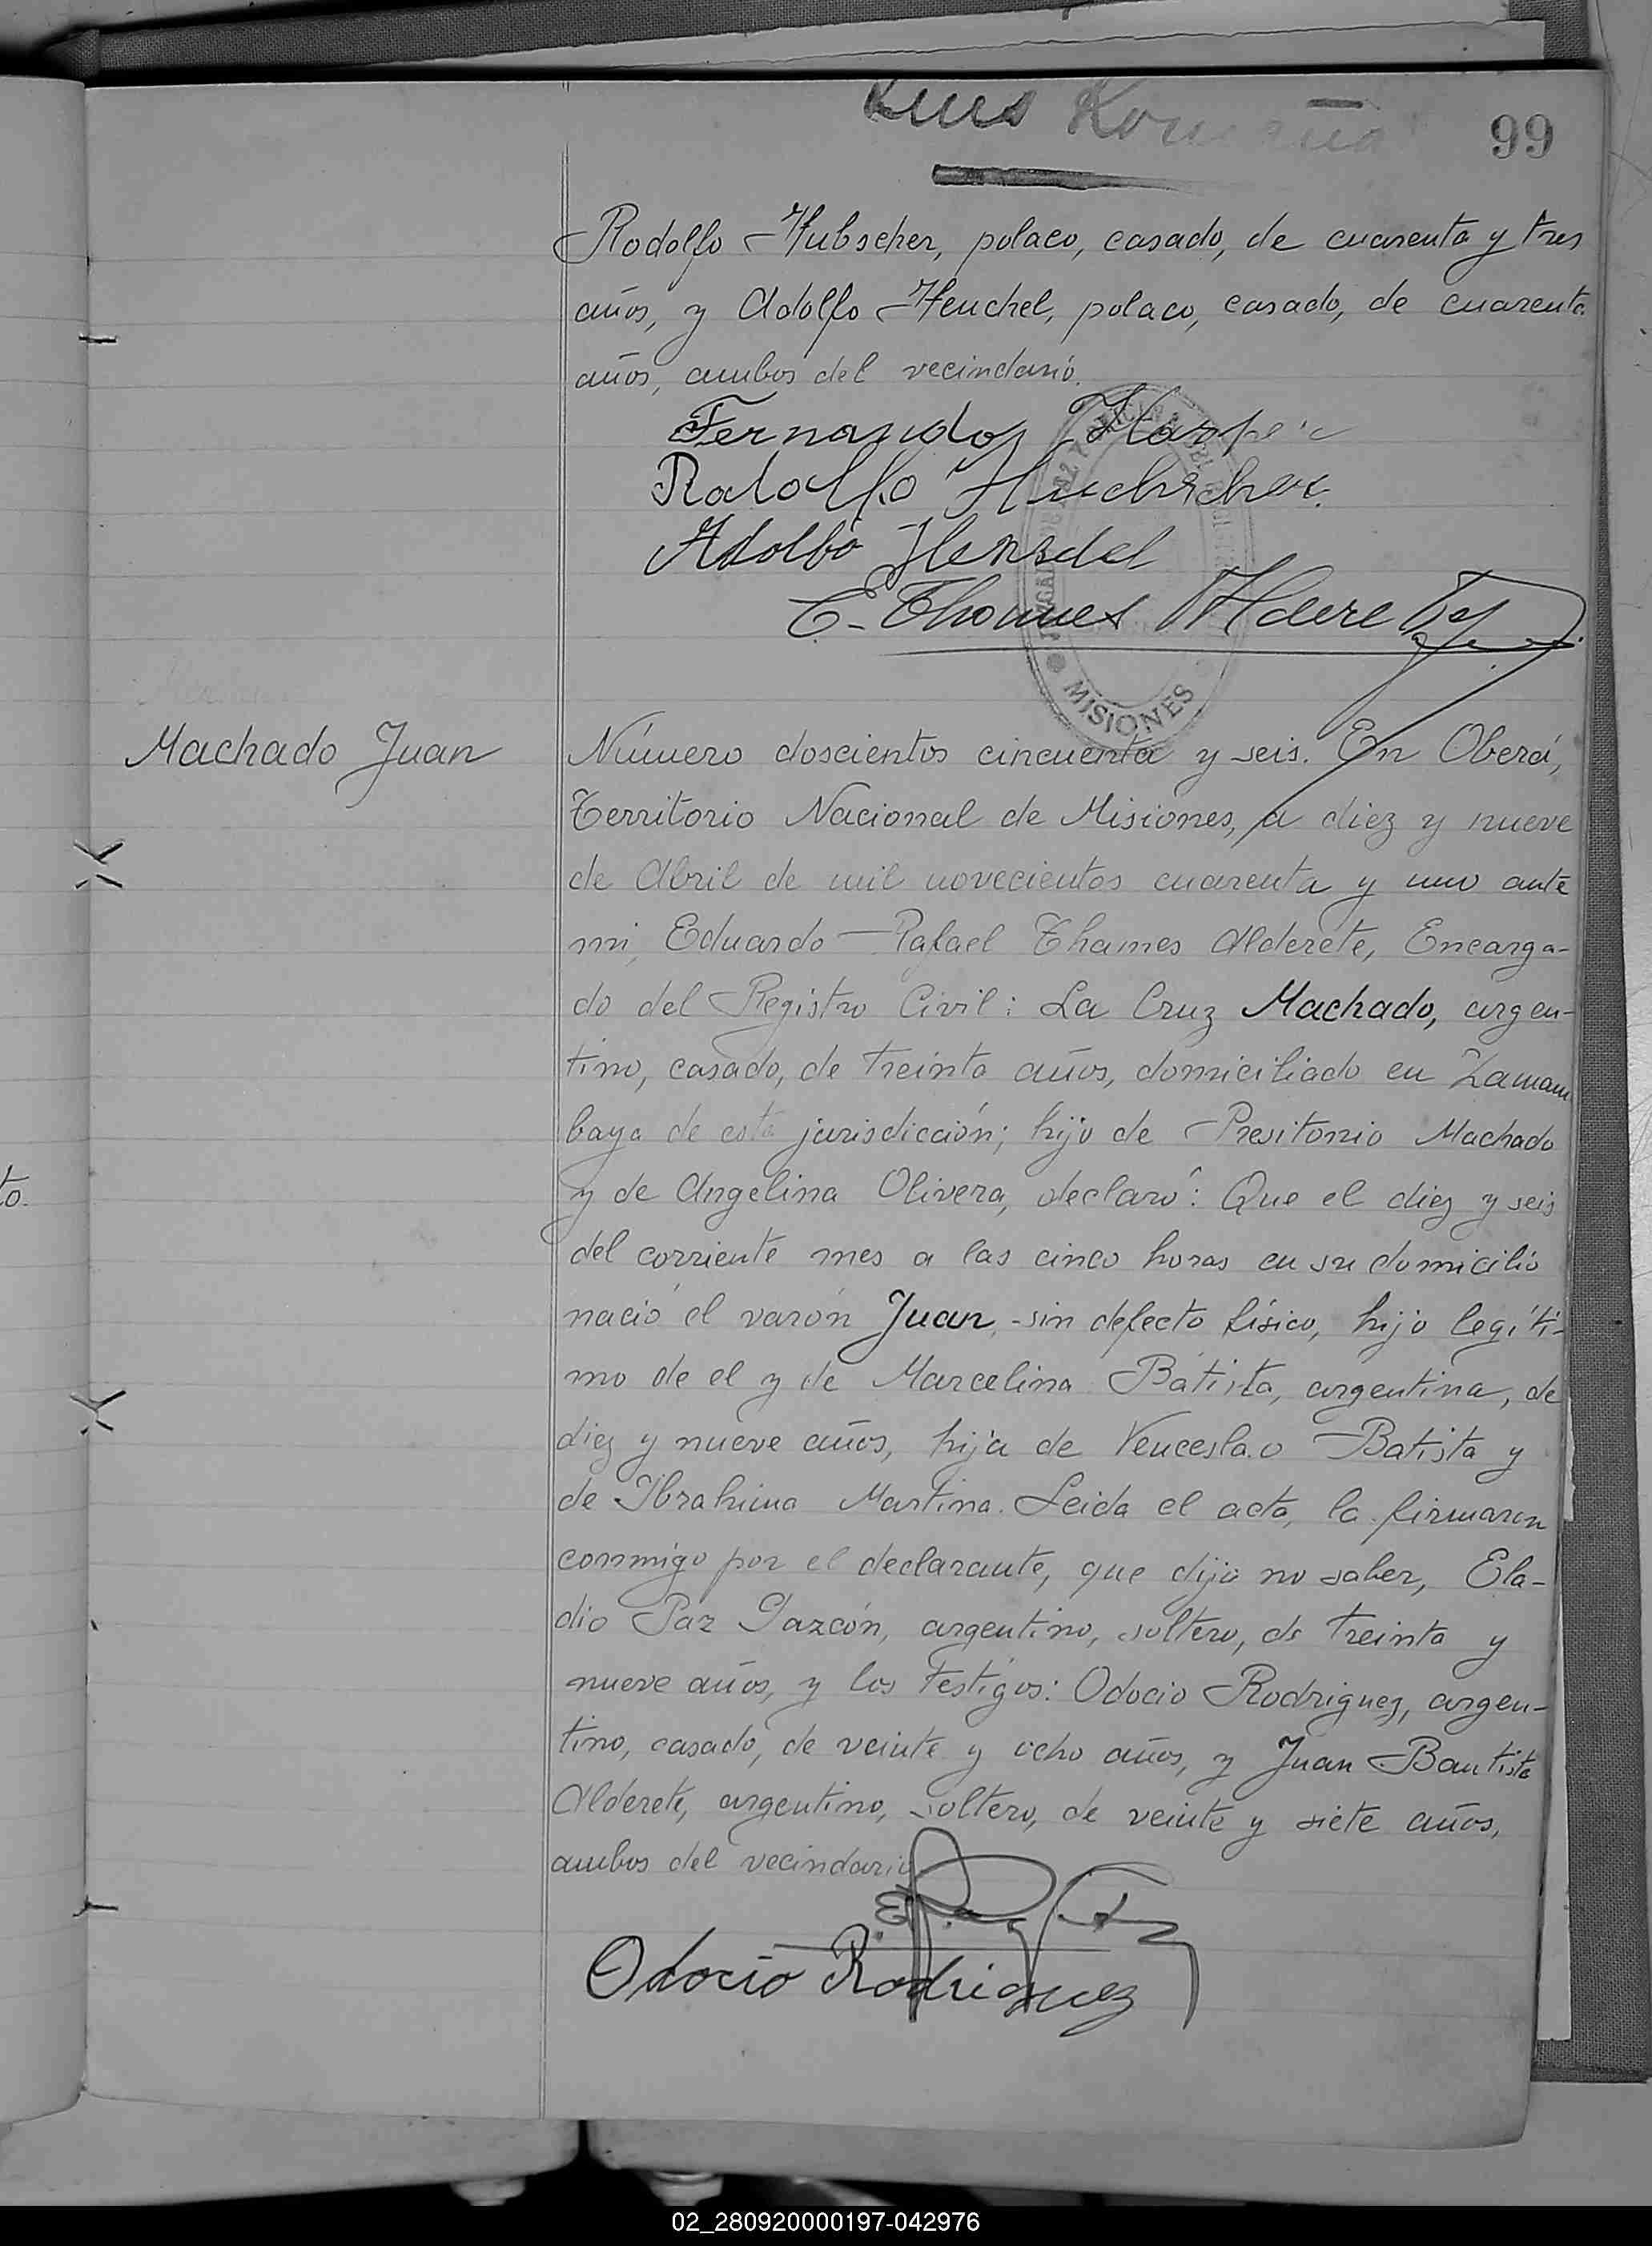 Luis
99
Rodolfo Hubscher, polaco, casado, de cuarenta y tres
años, y Adolfo Henchel, polaco, casado, de cuarenta
años, ambos del vecindario.
Fernando
Rodolfo
Adolfo Henschel
E. Thames Alderete
MISIONES
Machado Juan
Número doscientos cincuenta y seis. En Oberá,
Territorio Nacional de Misiones, a diez y nueve
de Abril de mil novecientos cuarenta y uno ante
mi, Eduardo Rafael Thames Alderete, Encarga-
do del Registro Civil: La Cruz Machado, argen-
tino, casado, de treinta años, domiciliado en
baya de esta jurisdicción; hijo de Presitonio Machado
y de Angelina Olivera, declaró: Que el diez y seis
del corriente mes a las cinco horas en su domicilio
nació el varón Juan, sin defecto físico, hijo legíti-
mo de el y de Marcelina Batista, argentina, de
diez y nueve años, hija de Venceslao Batista y
de Ibrahima Martina. Leida el acta, la firmaron
conmigo por el declarante, que dijo no saber, Ela-
dio Paz Gazcón, argentino, soltero, de treinta y
nueve años, y los testigos: Odocio Rodriguez, argen-
tino, casado, de veinte y ocho años, y Juan Bautista
Alderete, argentino, soltero, de veinte y siete años,
ambos del vecindario
Odocio Rodriguez
to.
02_280920000197-042976